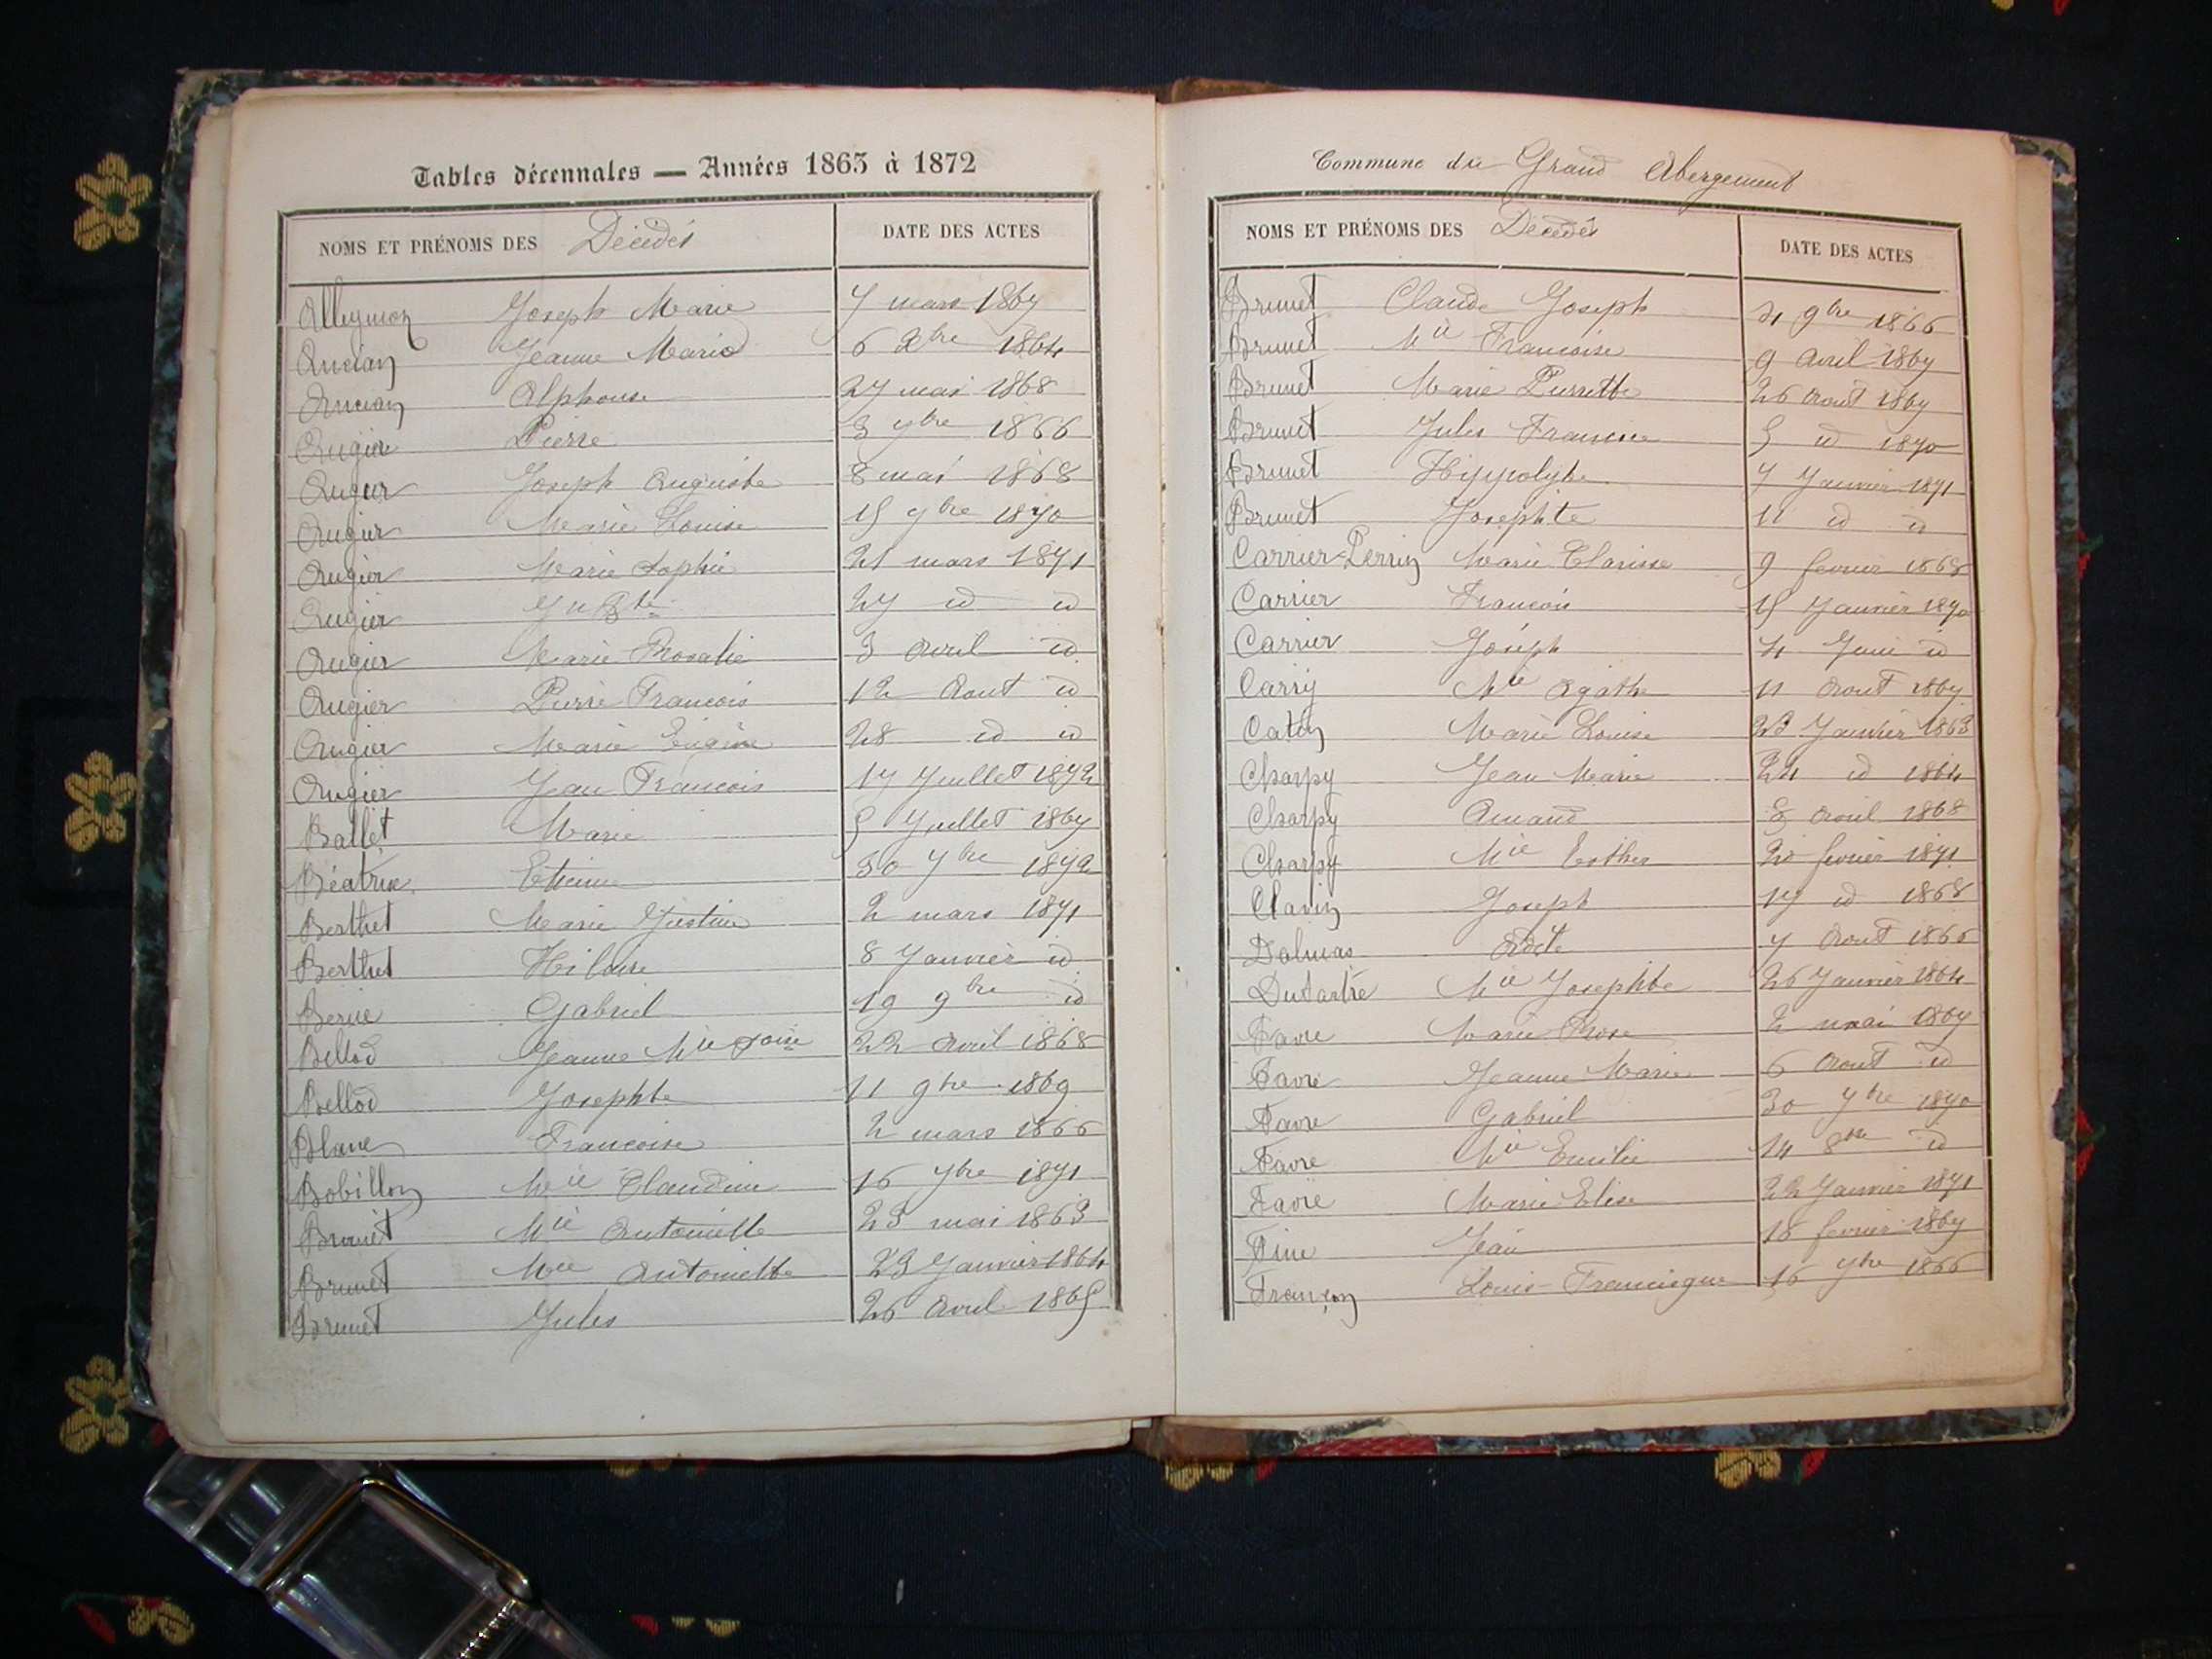 Tables décennales — Années 1863 à 1872
NOMS ET PRÉNOMS DES Décédés DATE DES ACTES
Joseph Marie 7 mars 1867
Ancian Jeanne Marie 6 Xbre 1864
Ancian Alphonse 27 mai 1868
Augier Pierre 3 7bre 1866
Augier Joseph Auguste 8 mai 1868
Augier Marie Louise 15 9bre 1870
Augier Marie Sophie 21 mars 1871
Augier 27 id id
Augier Marie Rosalie 3 Avril id
Augier Pierre Francois 12 Aout id
Augier Marie Eugénie 28 id id
Augier Jean Francois 17 Juillet 1872
Ballet Marie 5 Juillet 1867
Béatrix Etienne 30 7bre 1872
Berthet Marie Justine 2 mars 1871
Berthet Hilaire 8 Janvier id
Gabriel 19 9bre id
Bellod Jeanne Mie 22 Avril 1868
Bellod Josephte 11 9bre 1869
Blanc Francoise 2 mars 1866
Bobillon Mie Claudine 16 7bre 1871
Brunet Mie Antoinette 23 mai 1863
Brunet Mie Antoinette 23 Janvier 1864
Brunet Jules 26 Avril 1865
Commune du Grand Abergement
NOMS ET PRÉNOMS DES Décédés DATE DES ACTES
Brunet Claude Joseph 21 9bre 1866
Brunet Mie Francoise 9 Avril 1867
Brunet Marie Pierrette 26 Aout 1867
Brunet Jules 5 id 1870
Brunet Hippolyte 7 Janvier 1871
Brunet Josephte 11 id id
Carrier-Perrin Marie Clarisse 9 fevrier 1868
Carrier Francois 15 Janvier 1870
Carrier Joseph 4 Juin id
Carry Mie Agathe 11 Aout 1867
Catin Marie Louise 23 Janvier 1863
Charpy Jean Marie 24 id 1864
Charpy Amand 3 Avril 1868
Charpy Mie Esther 20 fevrier 1871
Clavin Joseph 17 id 1868
Dalmas 7 Aout 1866
Dutartre Mie Josephte 26 Janvier 1864
Favre Marie Rose 2 mai 1867
Favre Jeanne Marie 6 Aout id
Favre Gabriel 30 7bre 1870
Favre Mie Emilie 14 8bre id
Favre Marie Elise 22 Janvier 1871
Fine Jean 18 fevrier 1867
Françon Louis Francisque 16 7bre 1866